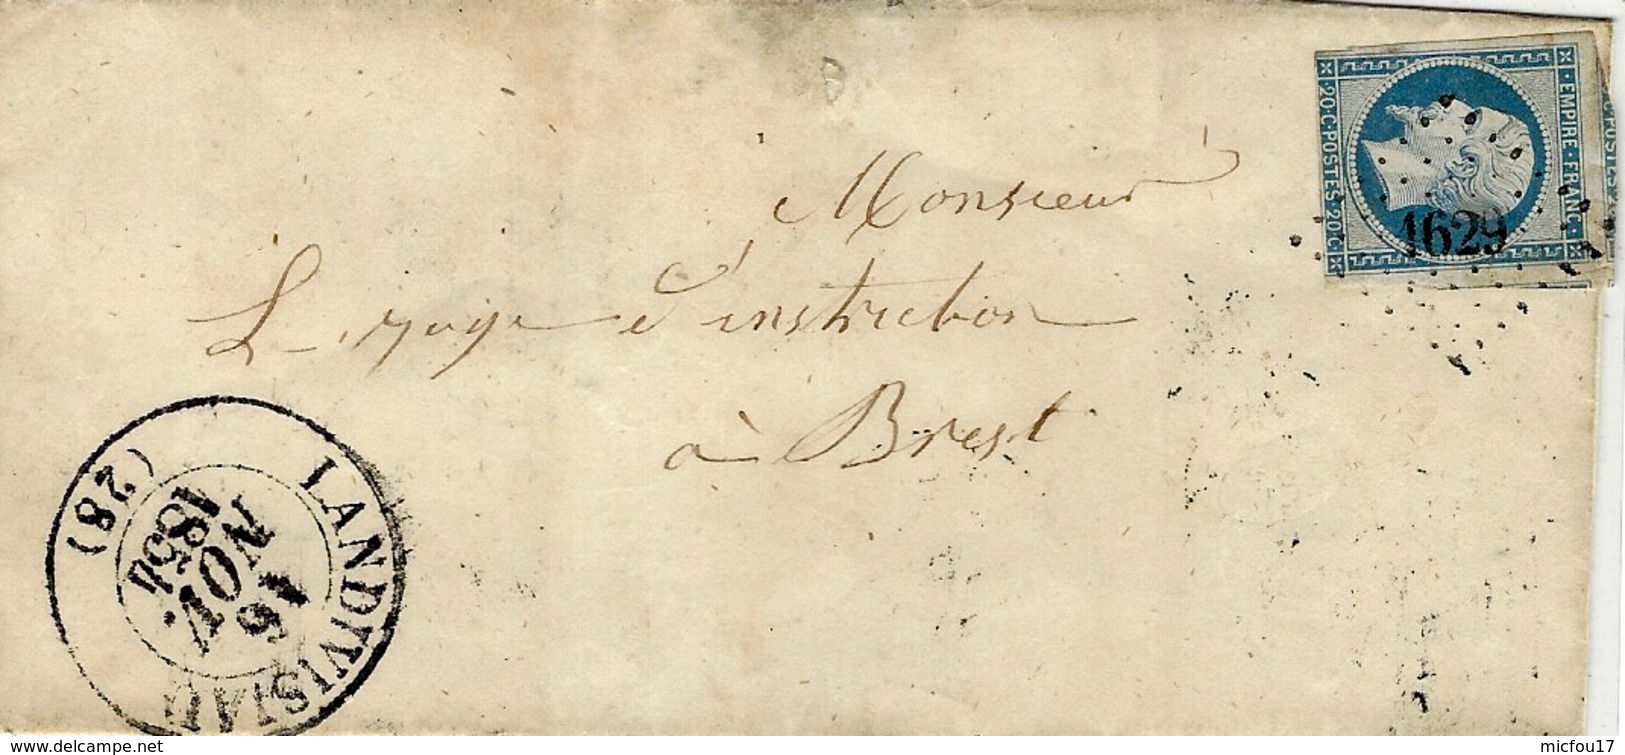 Monsieur
Le juge d'instruction
à Brest
20·C·POSTES·20·C
EMPIRE·FRANC·
1629
LANDIVISIAU
(28)
16
NOV.
www.delcampe.net
micfou17